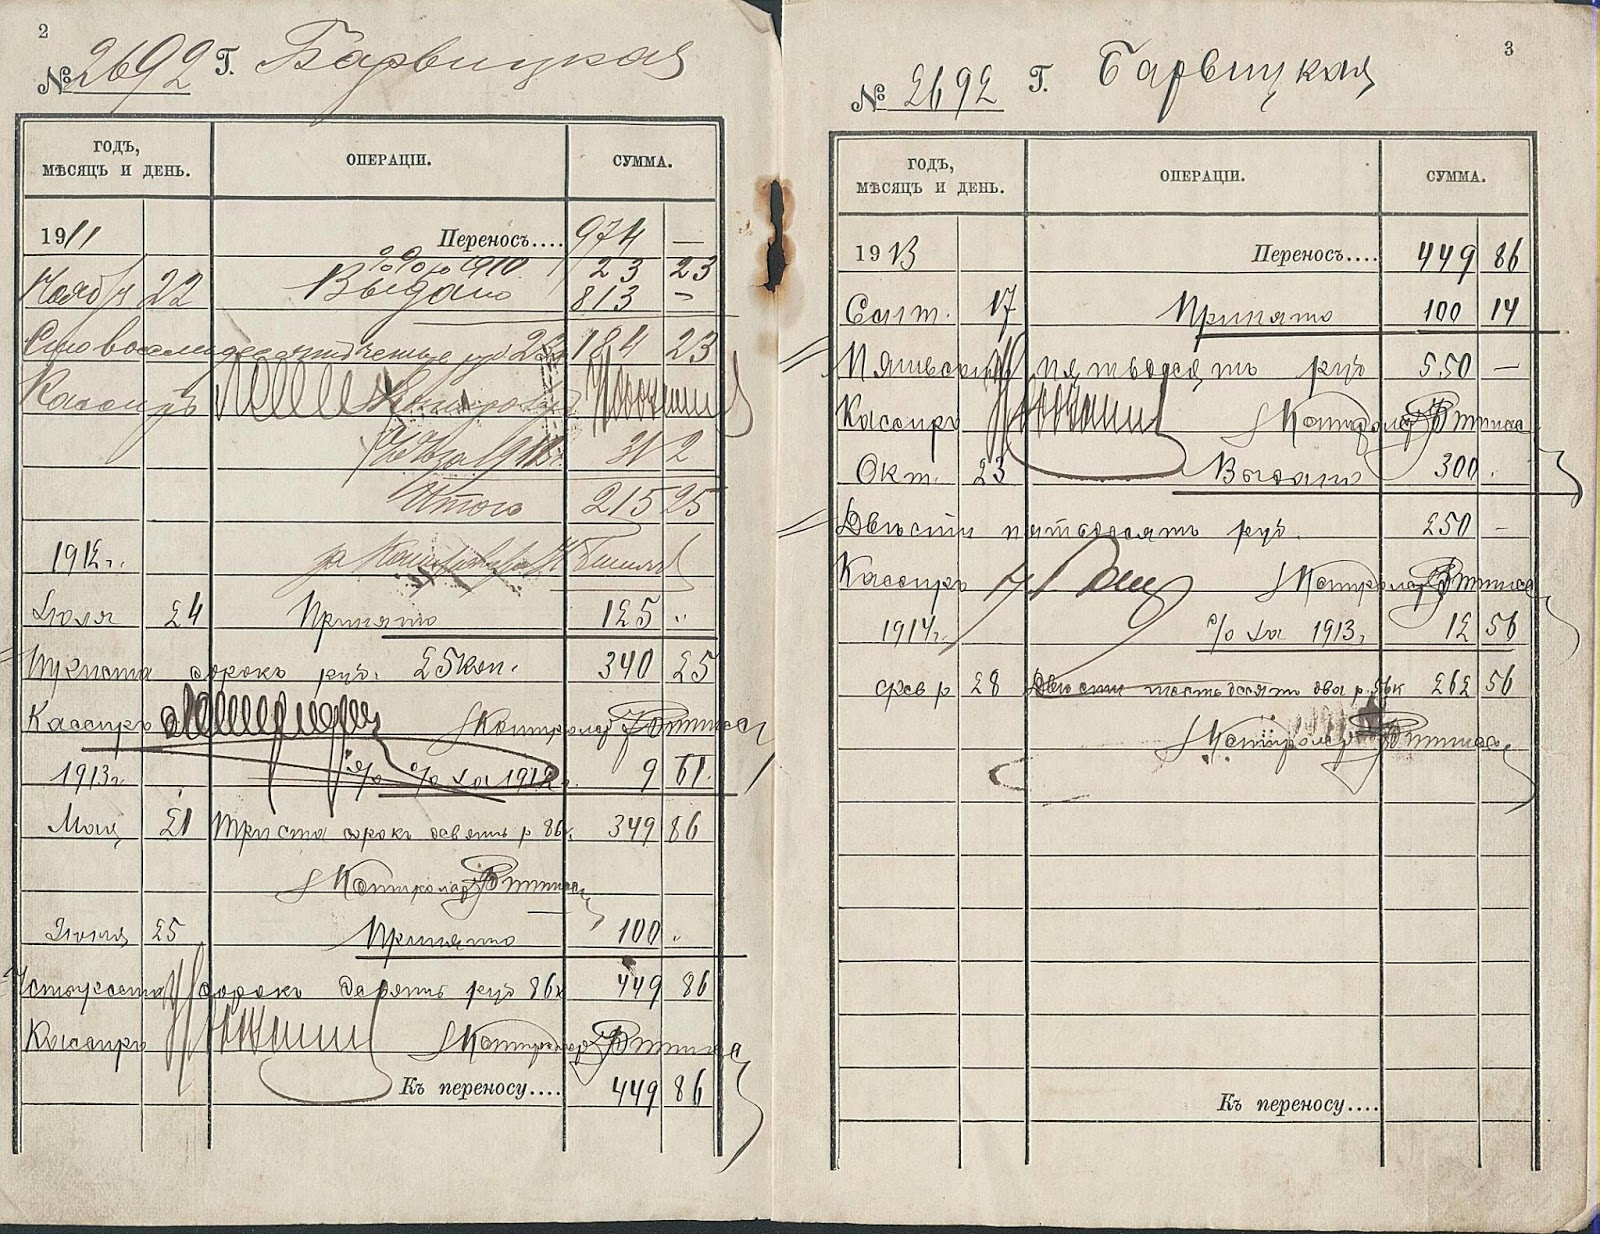 2
№ 2692 Г. Барвицкая
ГОДЪ, МѢСЯЦЪ И ДЕНЬ. ОПЕРАЦІИ. СУММА.
1911 Переносъ.... 974 —
23 23
Нояб 22 Выдано 813 —
184 23
Кассиръ
31 2
Итого 215 25
1912 г.
Іюля 24 Принято 125 "
Триста сорокъ руб. 25 коп. 340 25
Кассиръ Контролеръ
1913 г. % за 1912 г. 9 61
Мая 21 Триста сорокъ девять р 86 к. 349 86
Контролеръ
Іюня 25 Принято 100 "
Четыреста сорокъ девять руб 86 к 449 86
Кассиръ Контролеръ
Къ переносу.... 449 86
3
№ 2692 Г. Барвицкая
ГОДЪ, МѢСЯЦЪ И ДЕНЬ. ОПЕРАЦІИ. СУММА.
1913 Переносъ.... 449 86
Сент. 17 Принято 100 14
Пятьсотъ пятьдесятъ руб 550 —
Кассиръ Контролеръ
Окт. 23 Выдано 300 .
Двѣсти пятьдесятъ руб. 250 —
Кассиръ Контролеръ
1914 г. % за 1913 г. 12 56
февр 28 Двѣсти шестьдесятъ два р. 56 к 262 56
Контролеръ
Къ переносу....